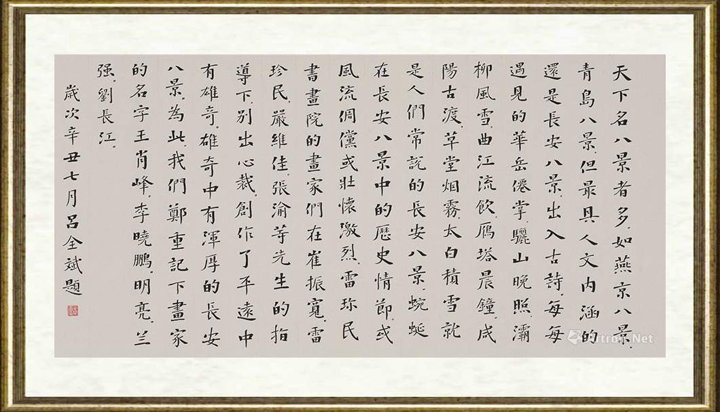 天下名八景者多,如燕京八景,
青島八景,但最具人文内涵的
還是長安八景,出入古詩,每每
遇見的華岳僊掌,驪山晚照,灞
柳風雪,曲江流飲,雁塔晨鐘,咸
陽古渡,草堂烟霧,太白積雪就
是人們常說的長安八景,蜿蜒
在長安八景中的歷史情節,或
風流倜儻或壯懷激烈,雷珍民
書畫院的畫家們在崔振寬,雷
珍民,嚴維佳,張渝等先生的指
導下,别出心裁,創作了平遠中
有雄奇,雄奇中有渾厚的長安
八景,為此,我們鄭重記下畫家
的名字王肖峰,李曉鵬,明亮,兰
强,劉長江,
歲次辛丑七月吕全斌題
Artron.Net